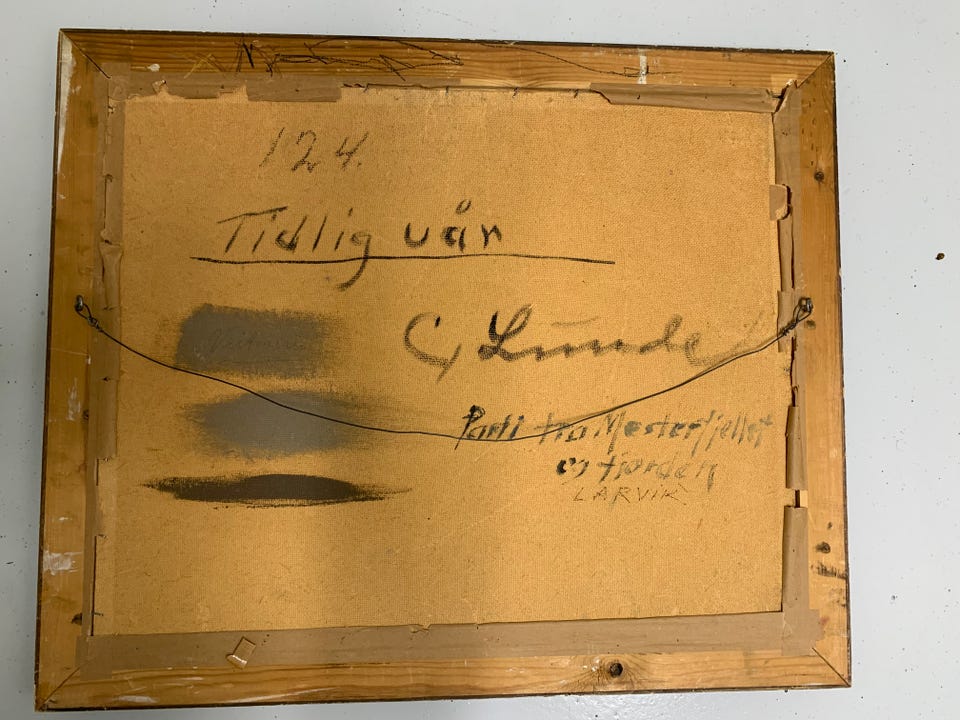 124.
Tidlig vår
C, Lunde
Parti fra Mesterfjellet
og fjorden
LARVIK